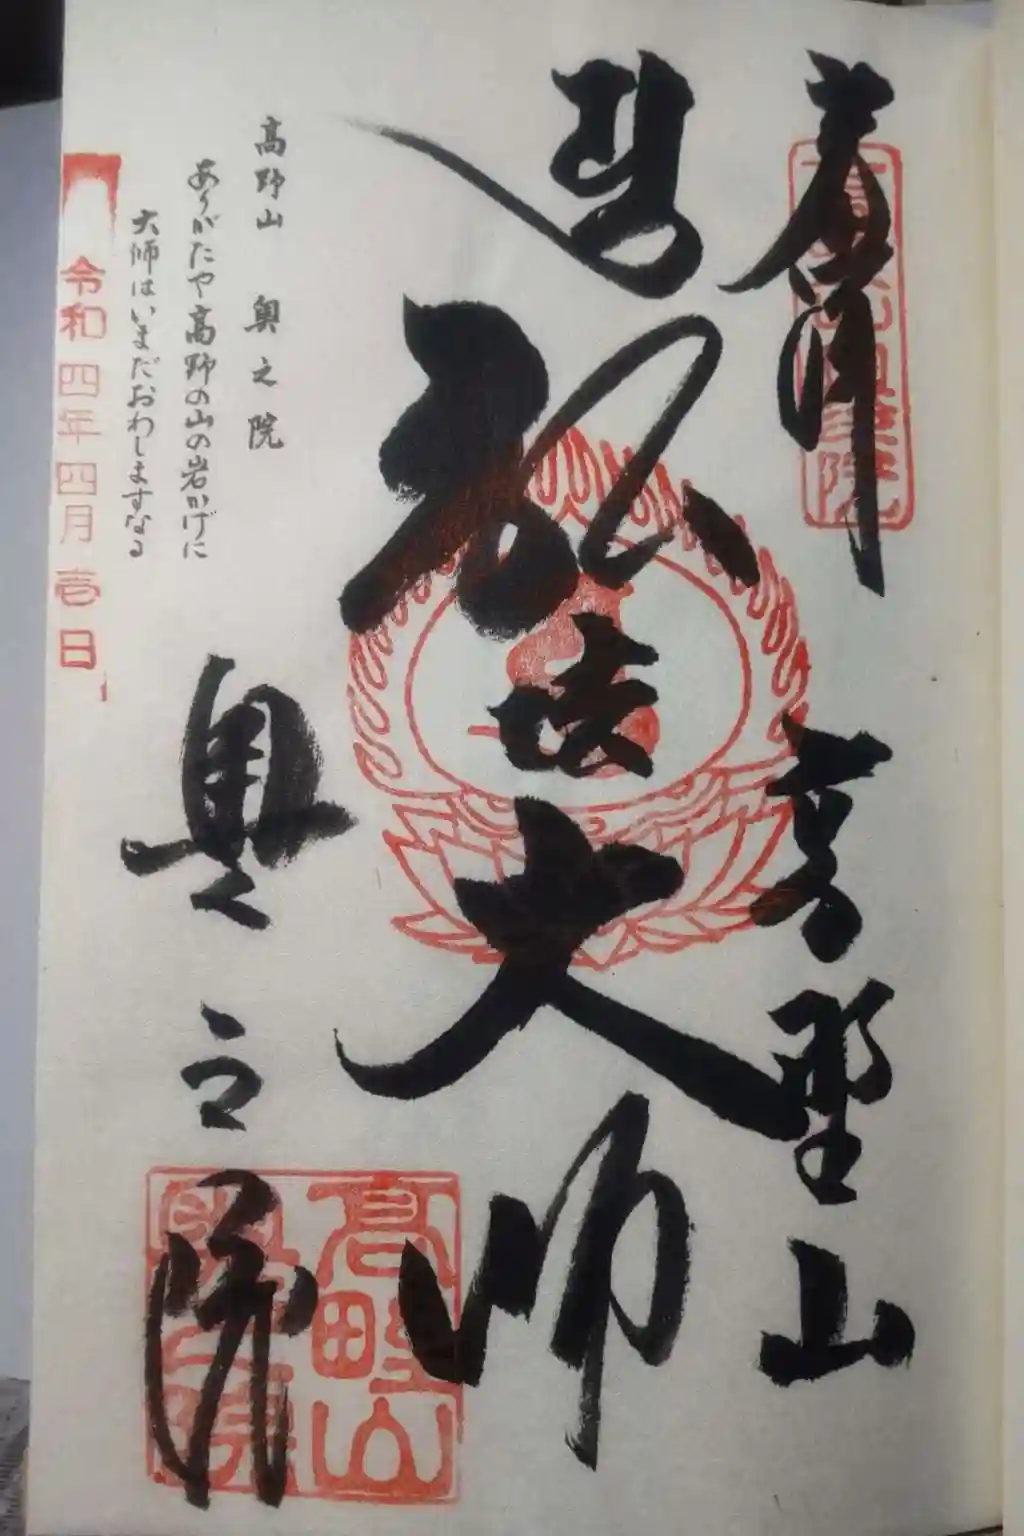 奉拝
高野山
弘法大師
奥之院
高野山 奥之院
ありがたや高野の山の岩かげに
大師はいまだおわしますなる
令和四年四月壱日
高野山
奥之院